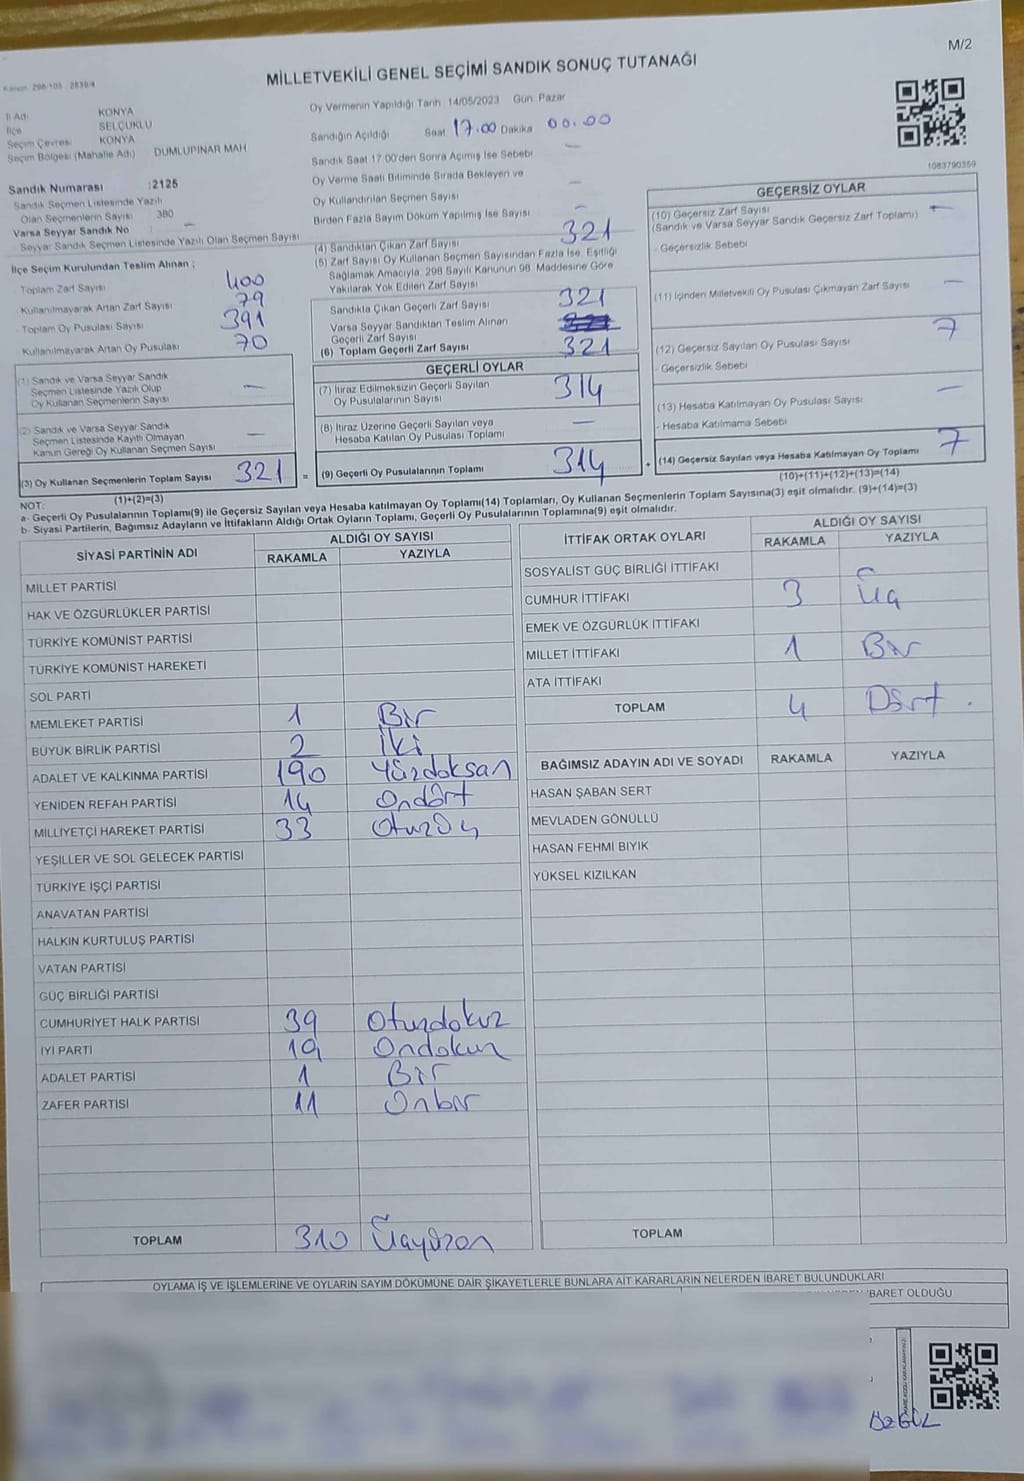 M/2
Kanun: 298/103 , 2839/4
MİLLETVEKİLİ GENEL SEÇİMİ SANDIK SONUÇ TUTANAĞI
İl Adı KONYA
İlçe SELÇUKLU
Seçim Çevresi KONYA
Seçim Bölgesi (Mahalle Adı) DUMLUPINAR MAH
Sandık Numarası :2125
Sandık Seçmen Listesinde Yazılı
Olan Seçmenlerin Sayısı 380
Varsa Seyyar Sandık No : -
Seyyar Sandık Seçmen Listesinde Yazılı Olan Seçmen Sayısı
İlçe Seçim Kurulundan Teslim Alınan ;
Toplam Zarf Sayısı 400
Kullanılmayarak Artan Zarf Sayısı 79
Toplam Oy Pusulası Sayısı 391
Kullanılmayarak Artan Oy Pusulası 70
(1) Sandık ve Varsa Seyyar Sandık
Seçmen Listesinde Yazılı Olup
Oy Kullanan Seçmenlerin Sayısı -
(2) Sandık ve Varsa Seyyar Sandık
Seçmen Listesinde Kayıtlı Olmayan
Kanun Gereği Oy Kullanan Seçmen Sayısı -
(3) Oy Kullanan Seçmenlerin Toplam Sayısı 321 =
(1)+(2)=(3)
Oy Vermenin Yapıldığı Tarih 14/05/2023 Gün: Pazar
Sandığın Açıldığı Saat 17.00 Dakika 00.00
Sandık Saat 17:00'den Sonra Açımış İse Sebebi -
Oy Verme Saati Bitiminde Sırada Bekleyen ve
Oy Kullandırılan Seçmen Sayısı -
Birden Fazla Sayım Döküm Yapılmış İse Sayısı -
(4) Sandıktan Çıkan Zarf Sayısı 321
(5) Zarf Sayısı Oy Kullanan Seçmen Sayısından Fazla İse, Eşitliği
Sağlamak Amacıyla, 298 Sayılı Kanunun 98. Maddesine Göre
Yakılarak Yok Edilen Zarf Sayısı
Sandıkta Çıkan Geçerli Zarf Sayısı 321
Varsa Seyyar Sandıktan Teslim Alınan
Geçerli Zarf Sayısı
(6) Toplam Geçerli Zarf Sayısı 321
GEÇERLİ OYLAR
(7) İtiraz Edilmeksizin Geçerli Sayılan
Oy Pusulalarının Sayısı 314
(8) İtiraz Üzerine Geçerli Sayılan veya
Hesaba Katılan Oy Pusulası Toplamı -
(9) Geçerli Oy Pusulalarının Toplamı 314 +
1083790359
GEÇERSİZ OYLAR
(10) Geçersiz Zarf Sayısı -
(Sandık ve Varsa Seyyar Sandık Geçersiz Zarf Toplamı)
Geçersizlik Sebebi
(11) İçinden Milletvekili Oy Pusulası Çıkmayan Zarf Sayısı -
(12) Geçersiz Sayılan Oy Pusulası Sayısı 7
Geçersizlik Sebebi
(13) Hesaba Katılmayan Oy Pusulası Sayısı -
Hesaba Katılmama Sebebi
(14) Geçersiz Sayılan veya Hesaba Katılmayan Oy Toplamı 7
(10)+(11)+(12)+(13)=(14)
NOT:
a- Geçerli Oy Pusulalarının Toplamı(9) ile Geçersiz Sayılan veya Hesaba katılmayan Oy Toplamı(14) Toplamları, Oy Kullanan Seçmenlerin Toplam Sayısına(3) eşit olmalıdır. (9)+(14)=(3)
b- Siyasi Partilerin, Bağımsız Adayların ve İttifakların Aldığı Ortak Oyların Toplamı, Geçerli Oy Pusulalarının Toplamına(9) eşit olmalıdır.
SİYASİ PARTİNİN ADI ALDIĞI OY SAYISI
RAKAMLA YAZIYLA
MİLLET PARTİSİ
HAK VE ÖZGÜRLÜKLER PARTİSİ
TÜRKİYE KOMÜNİST PARTİSİ
TÜRKİYE KOMÜNİST HAREKETİ
SOL PARTİ
MEMLEKET PARTİSİ 1 Bir
BÜYÜK BİRLİK PARTİSİ 2 İki
ADALET VE KALKINMA PARTİSİ 190 Yüzdoksan
YENİDEN REFAH PARTİSİ 14 Ondört
MİLLİYETÇİ HAREKET PARTİSİ 33 Otuzüç
YEŞİLLER VE SOL GELECEK PARTİSİ
TÜRKİYE İŞÇİ PARTİSİ
ANAVATAN PARTİSİ
HALKIN KURTULUŞ PARTİSİ
VATAN PARTİSİ
GÜÇ BİRLİĞİ PARTİSİ
CUMHURİYET HALK PARTİSİ 39 Otuzdokuz
İYİ PARTİ 19 Ondokuz
ADALET PARTİSİ 1 Bir
ZAFER PARTİSİ 11 Onbir
TOPLAM 310 Üçyüzon
İTTİFAK ORTAK OYLARI ALDIĞI OY SAYISI
RAKAMLA YAZIYLA
SOSYALİST GÜÇ BİRLİĞİ İTTİFAKI
CUMHUR İTTİFAKI 3 Üç
EMEK VE ÖZGÜRLÜK İTTİFAKI
MİLLET İTTİFAKI 1 Bir
ATA İTTİFAKI
TOPLAM 4 Dört .
BAĞIMSIZ ADAYIN ADI VE SOYADI RAKAMLA YAZIYLA
HASAN ŞABAN SERT
MEVLADEN GÖNÜLLÜ
HASAN FEHMİ BIYIK
YÜKSEL KIZILKAN
TOPLAM
OYLAMA İŞ VE İŞLEMLERİNE VE OYLARIN SAYIM DÖKÜMÜNE DAİR ŞİKAYETLERLE BUNLARA AİT KARARLARIN NELERDEN İBARET BULUNDUKLARI
İBARET OLDUĞU
ÖZGÜL